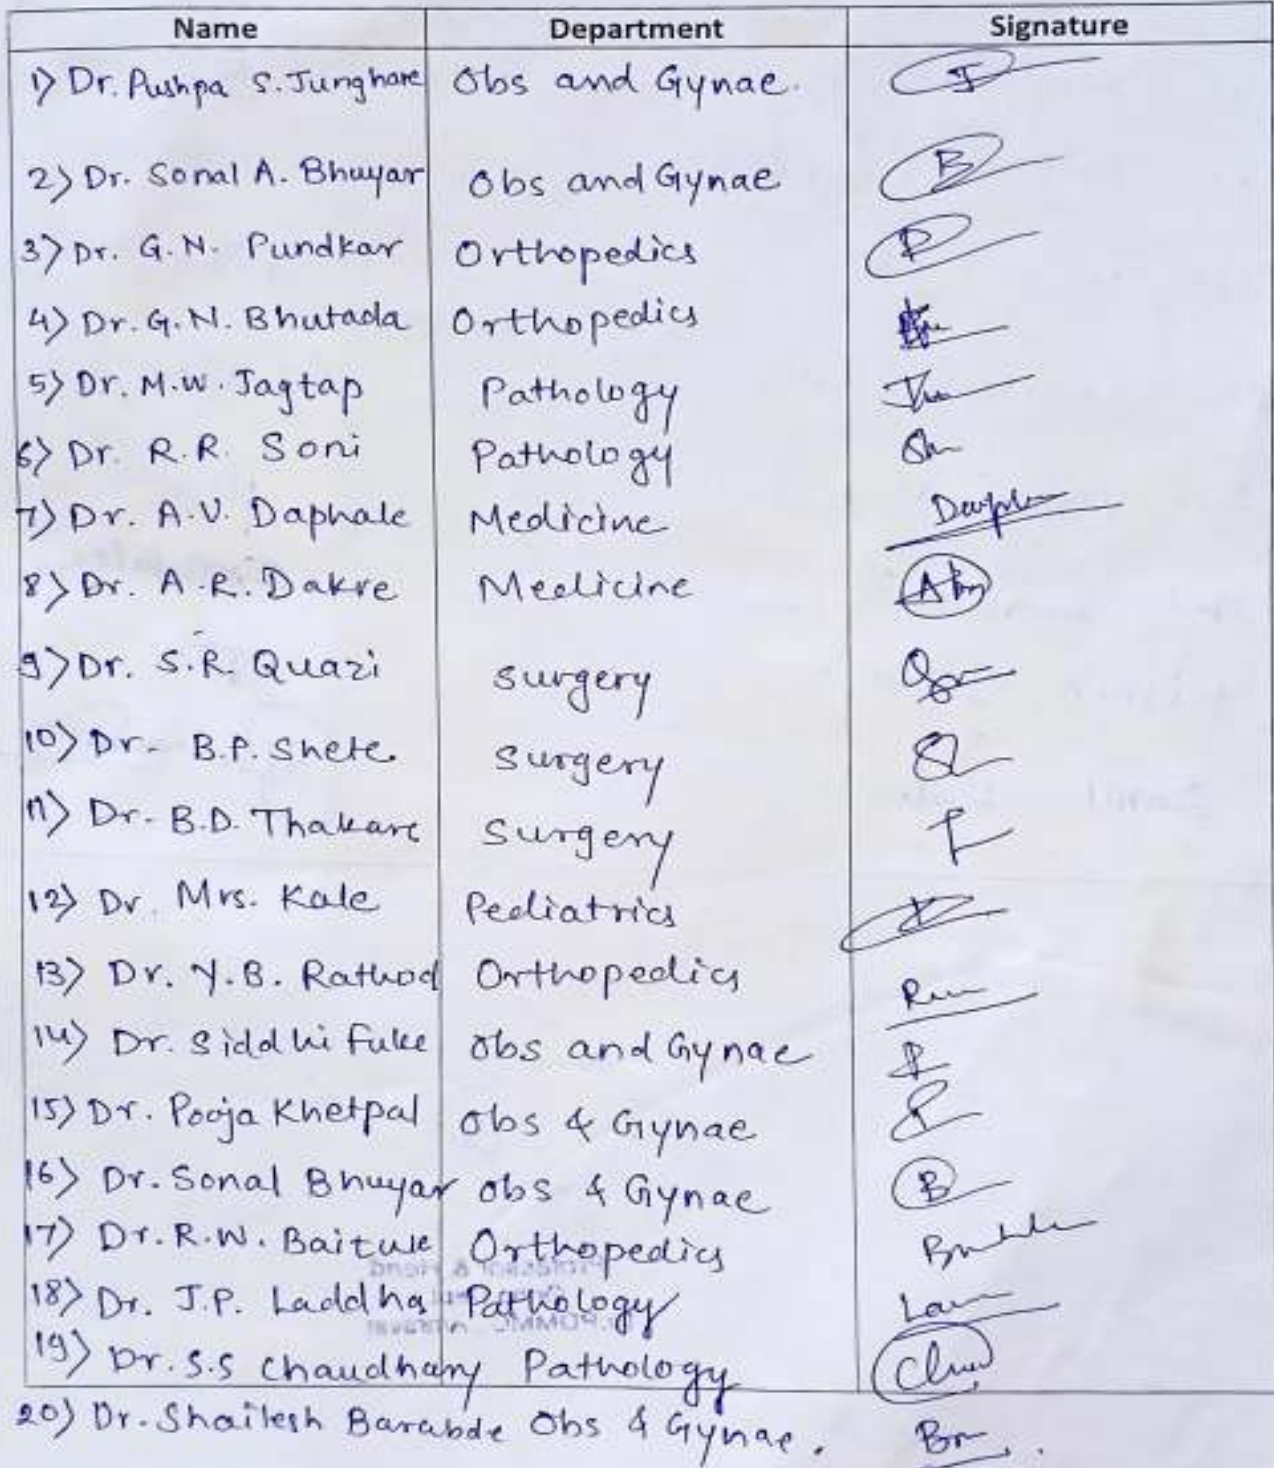 Name Department Signature
1) Dr. Pushpa S. Junghare Obs and Gynae.
2) Dr. Sonal A. Bhuyar Obs and Gynae
3) Dr. G.N. Pundkar Orthopedics
4) Dr. G.N. Bhutada Orthopedics
5) Dr. M.W. Jagtap Pathology
6) Dr. R.R. Soni Pathology
7) Dr. A.V. Daphale Medicine
8) Dr. A.R. Dakre Medicine
9) Dr. S.R. Quazi surgery
10) Dr- B.P. Shete. Surgery
11) Dr- B.D. Thakare Surgery
12) Dr. Mrs. Kale Pediatrics
13) Dr. Y.B. Rathod Orthopedics
14) Dr. Siddhi Fuke obs and Gynae
15) Dr. Pooja Khetpal obs & Gynae
16) Dr. Sonal Bhuyar obs & Gynae
17) Dr. R.W. Baitule Orthopedics
18) Dr. J.P. Laddha Pathology
19) Dr. S.S Chaudhary Pathology
20) Dr. Shailesh Barabde Obs & Gynae.